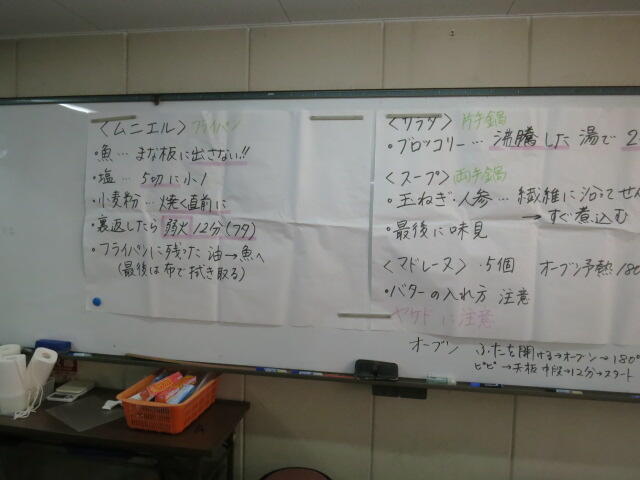 〈ムニエル〉 フライパン
・魚… まな板に出さない!!
・塩… 5切に小1
・小麦粉… 焼く直前に
・裏返したら 弱火12分(フタ)
・フライパンに残った 油→魚へ
(最後は布で拭き取る)
〈サラダ〉 片手鍋
・ブロッコリー… 沸騰した 湯で 2
〈スープ〉 両手鍋
・玉ねぎ・人参… 繊維に沿ってせん
→すぐ煮込む
・最後に味見
〈マドレーヌ〉 ・5個 オーブン予熱180
・バターの入れ方 注意
ヤケドに注意
オーブン ふたを開ける→オーブン→180°
ピピ→天板 中段→12分→スタート